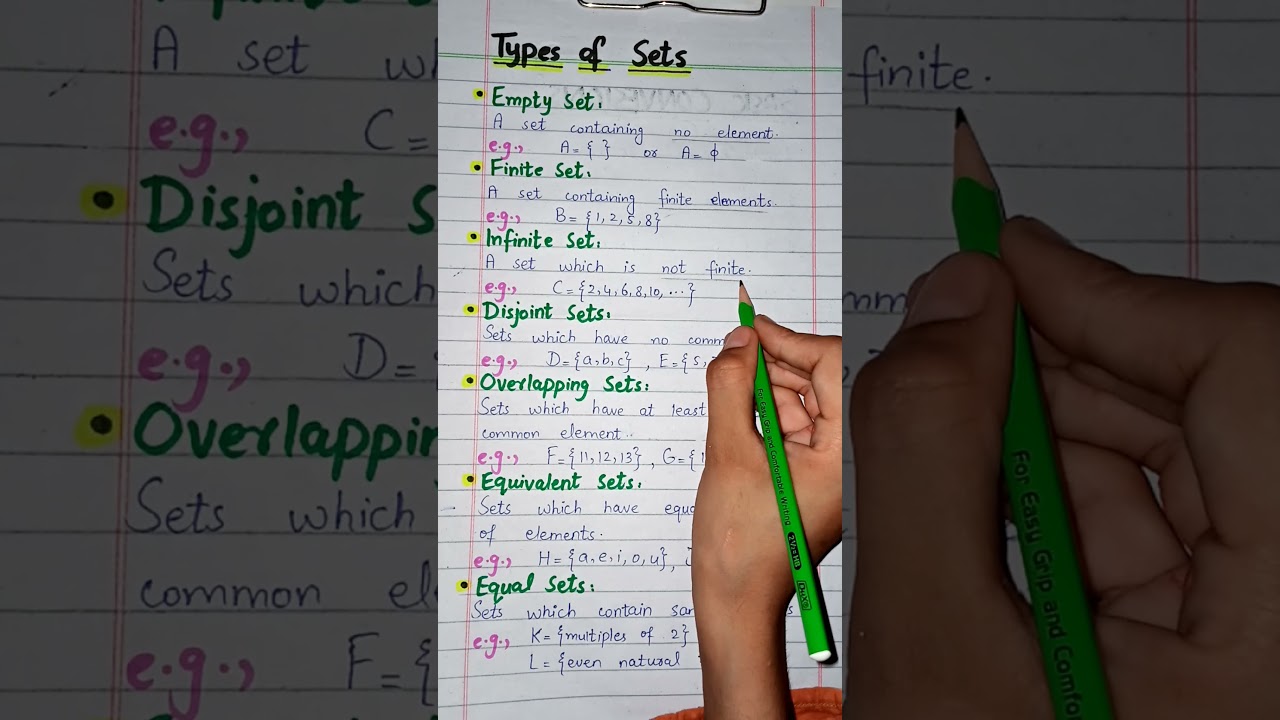 Types of Sets
• Empty Set:
A set containing no element.
e.g., A = { } or A = ϕ
• Finite Set:
A set containing finite elements.
e.g., B = {1, 2, 5, 8}
• Infinite Set:
A set which is not finite.
e.g., C = {2, 4, 6, 8, 10, ...}
• Disjoint Sets:
Sets which have no comm
e.g., D = {a, b, c} , E = {s,
• Overlapping Sets:
Sets which have at least
common element.
e.g., F = {11, 12, 13} , G = {1
• Equivalent Sets:
Sets which have equa
of elements.
e.g., H = {a, e, i, o, u},
• Equal Sets:
Sets which contain sa
e.g., K = {multiples of 2}
L = {even natural
For Easy Grip and Comfortable Writing 2½=HB DUX